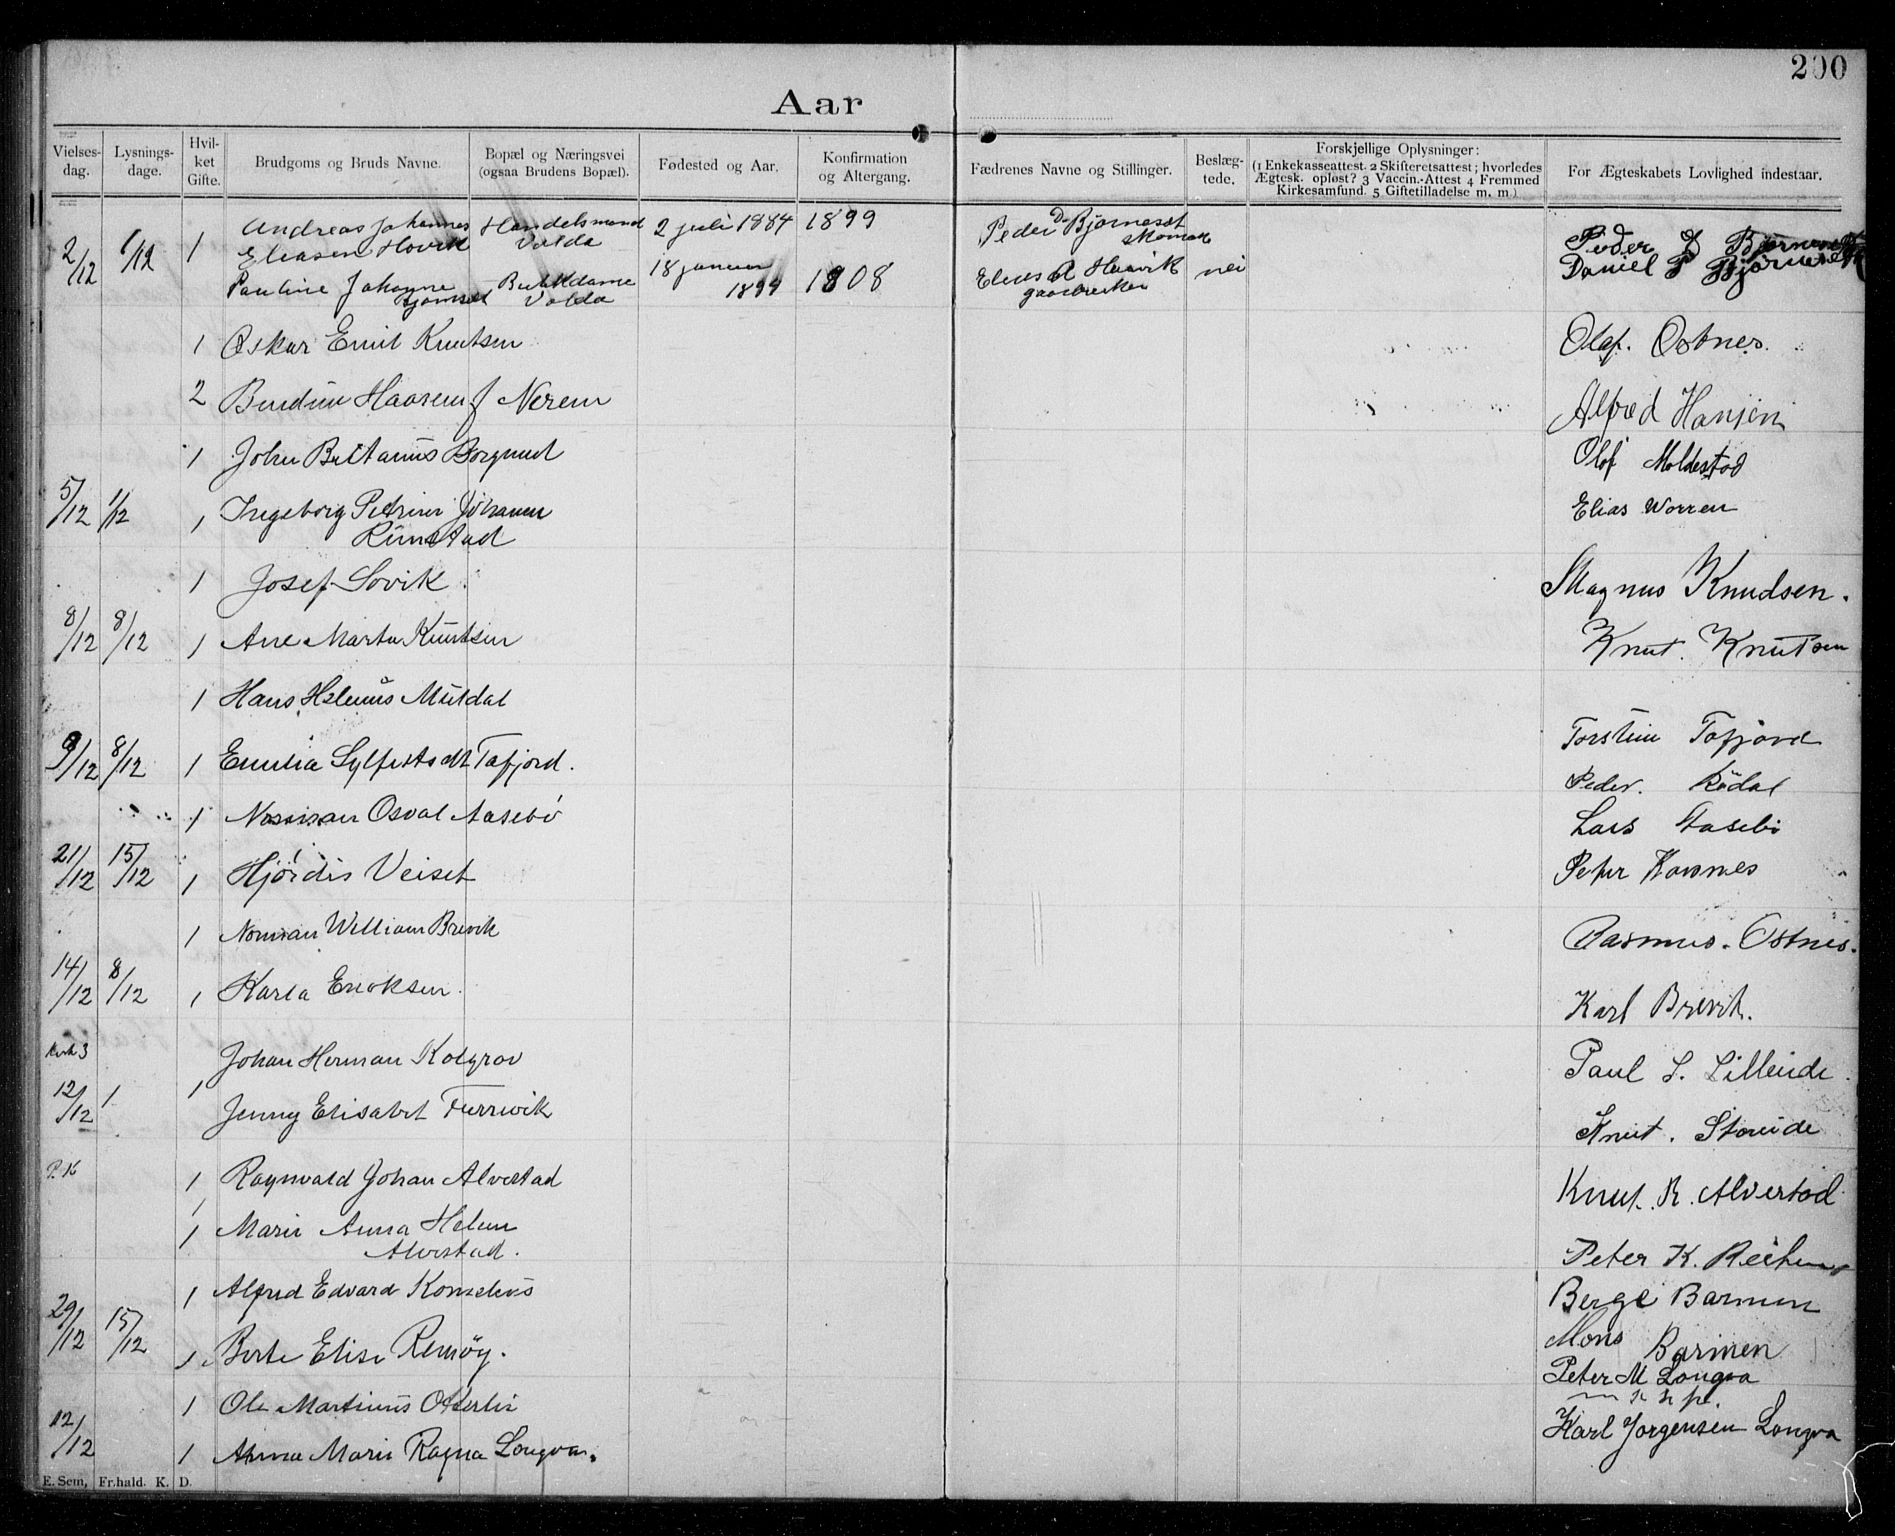 200
Aar
Vielses-
dag.
Lysnings-
dage.
Hvil-
ket
Gifte.
Brudgoms og Bruds Navne.
Bopæl og Næringsvei
(ogsaa Brudens Bopæl).
Fødested og Aar.
Konfirmation
og Altergang.
Fædrenes Navne og Stillinger.
Beslæg-
tede.
Forskjellige Oplysninger:
(1 Enkekasseattest. 2 Skifteretsattest; hvorledes
Ægtesk. opløst? 3 Vaccin.-Attest 4 Fremmed
Kirkesamfund. 5 Giftetilladelse m. m.)
For Ægteskabets Lovlighed indestaar.
2/12 1/12 1 Andreas Johannes Handelsmand 2 juli 1884 1899 Peder D. Bjørneset Peder D Bjørneset
Eliasen Hovik Volda
Pauline Johanne Butikdame 18 januar 1894 1908 Elias A Haavik nei Daniel P Bjørneset
Volda gaardbruker
1 Oskar Emil Knutsen Olaf. Ostnes.
2 Haasen f Nerem Alfred Hansen
1 John Borgund Olof Moldestad
5/12 1/12 1 Ingeborg Petrine Johanna Elias Worren
Rimstad
1 Josef Sovik Magnus Knudsen.
8/12 8/12 1 Ane Marta Knutsen Knut. Knutsen
1 Hans Helenus Muldal
9/12 8/12 1 Emilia Tafjord. Torstein Tafjord
Peder. Rödal
1 Norman Osval Aasebö Lars Aasebö
21/12 15/12 1 Hjördis Veiset Peter
1 Norman William Brevik Rasmus. Ostnes.
14/12 8/12 1 Karla Karl Brevik.
Johan Herman Kolgrov Paul S. Lilleide.
12/12 1 1 Jenny Elisabet Furrevik Knut. Storeide
P. K 1 Ragnvald Johan Alvestad Knut. R. Alvestad
1 Marie Anna Helene
Alvestad.
Peter K.
1 Alfred Edvard Kornelius Berge Barmen
29/12 15/12 1 Berte Elise Remöy. Mons Barmen
Peter M Longva
m h p.
1 Ole Martinus Otterlei
12/12 1 Anna Marie Ragna Longva. Karl Jorgensen Longva
E. Sem, Fr.hald. K. D.